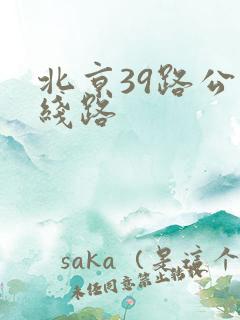 北京39路公
线路
saka（是这个
未经同意禁止转载